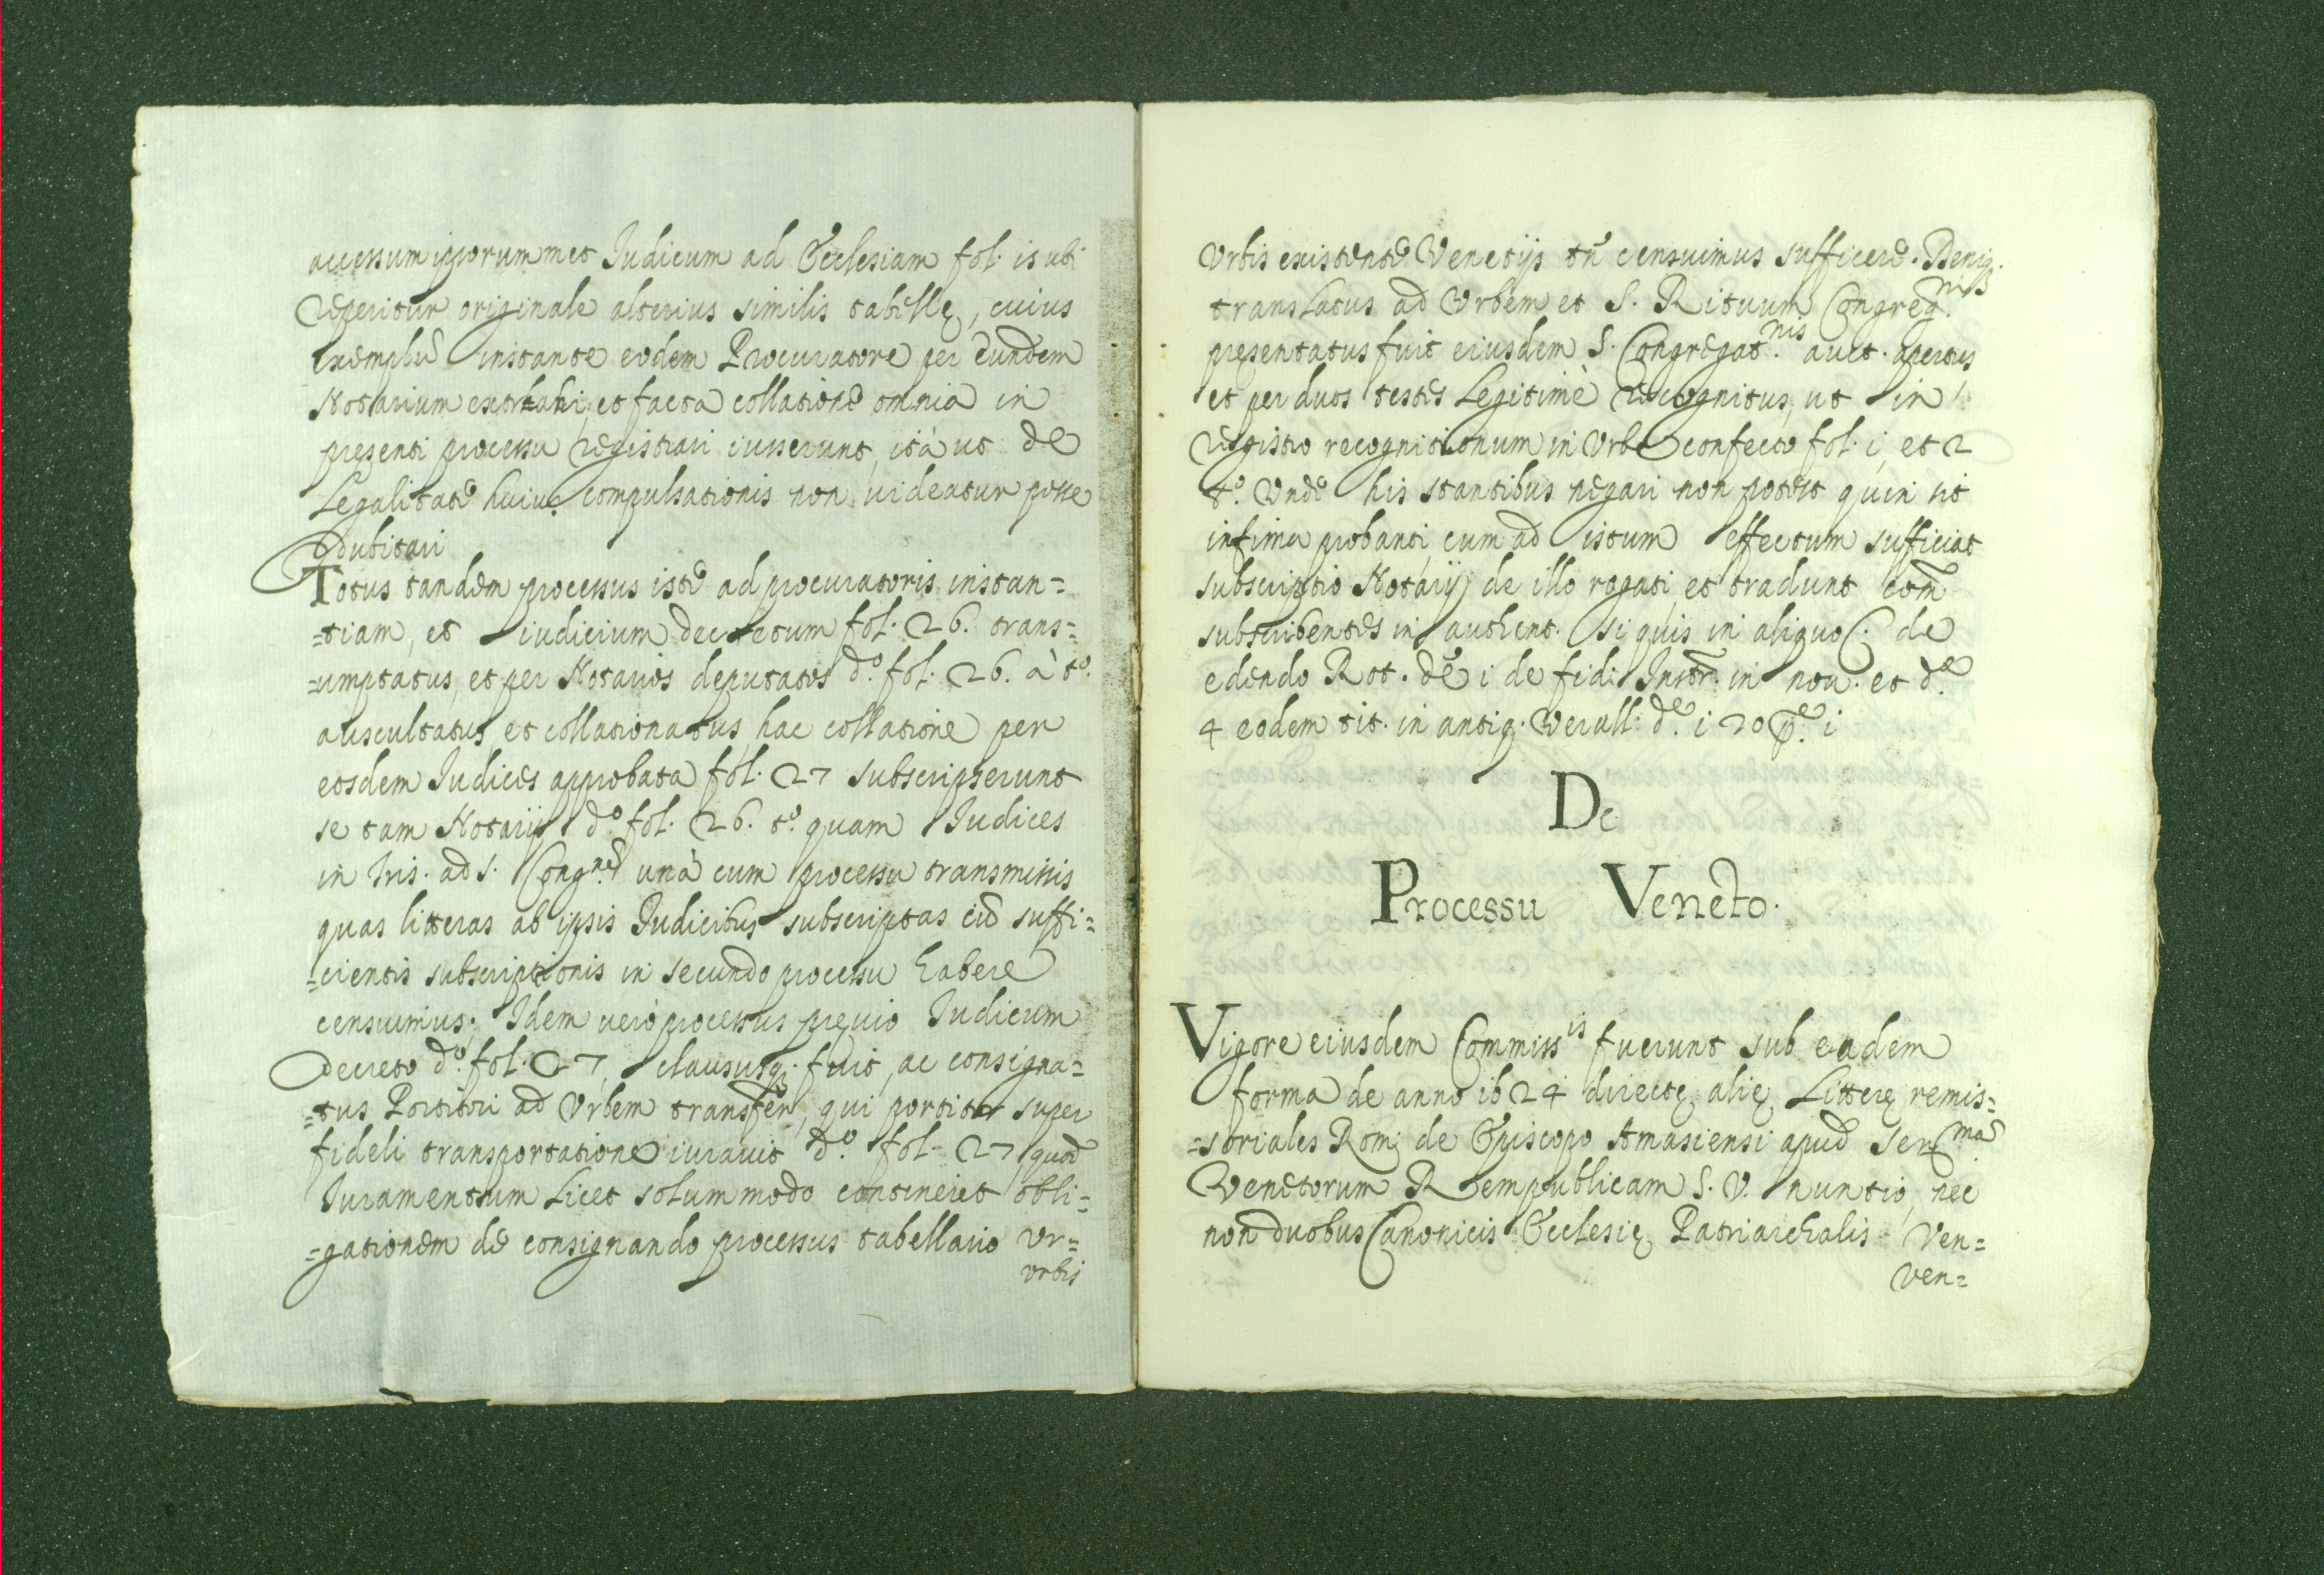 accessum ipsorummet Iudicum ad Ecclesiam fol. is ubi
reperitur originale alterius similis tabellę, cuius
exemplũ instante eodem Procuratore per eundem
Notarium extrahi, et facta collatione omnia in
pręsenti processu registrari iusserunt, ità ut de
Legalitate huius compulsationis non uideatur posse
dubitari
Totus tandem processus iste ad procuratoris instan=
=tiam, et iudicium decretum fol. 26. trans=
=umptatus, et per Notarios deputatos d.º fol. 26. à t.º
auscultatus, et collationatus, hac collatione per
eosdem Iudices approbata fol. 27 subscripserunt
se tam Notarij d.º fol. 26. t.º quam Iudices
in lris. ad S. Cong.ne unà cum processu transmissis
quas litteras ab ipsis Iudicibus subscriptas uim suffi=
=cientis subscriptionis in secundo processu habere
censuimus; Idem uerò processus pręuio Iudicum
decreto d.º fol. 27, claususq. fuit, ac consigna=
=tus Portitori ad Vrbem transfer, qui portitor super
fideli transportatione iurauit d.º fol. 27 quod
Iuramentum Licet solummodo contineret obli=
=gationem de consignando processus tabellario Vr=
Vrbis
Vrbis existente Venetijs tñ censuimus sufficere. Deniq.
translatus ad Vrbem et S. Rituum Congreg.nis
pręsentatus fuit eiusdem S. Congregat.nis auct. apertus
et per duos testes Legitimè recognitus, ut in
registro recognitionum in Vrbe confecto fol. i, et 2
t.º Vnde his stantibus negari non potest quin sit
infima probanti, cum ad istum effectum sufficiat
subscriptio Notarij de illo rogati, et tradunt com̃
subscribentes in authent. si quis in aliquo C. de
edendo Rot. dẽ i de fid: Instr. in nou. et d.e
4 eodem tit. in antiq. Verall. d.e i 20 p.e i
De
Processu Veneto.
Vigore eiusdem Commiss.is fuerunt sub eadem
forma de anno ib24 directę alię Litterę remis=
=soriales Rom; de Episcopo Amasiensi apud Ser.ma
Venetorum Rempublicam S. V. nuntio, nec
non duobus Canonicis Ecclesię Patriarchalis Ven=
Ven=